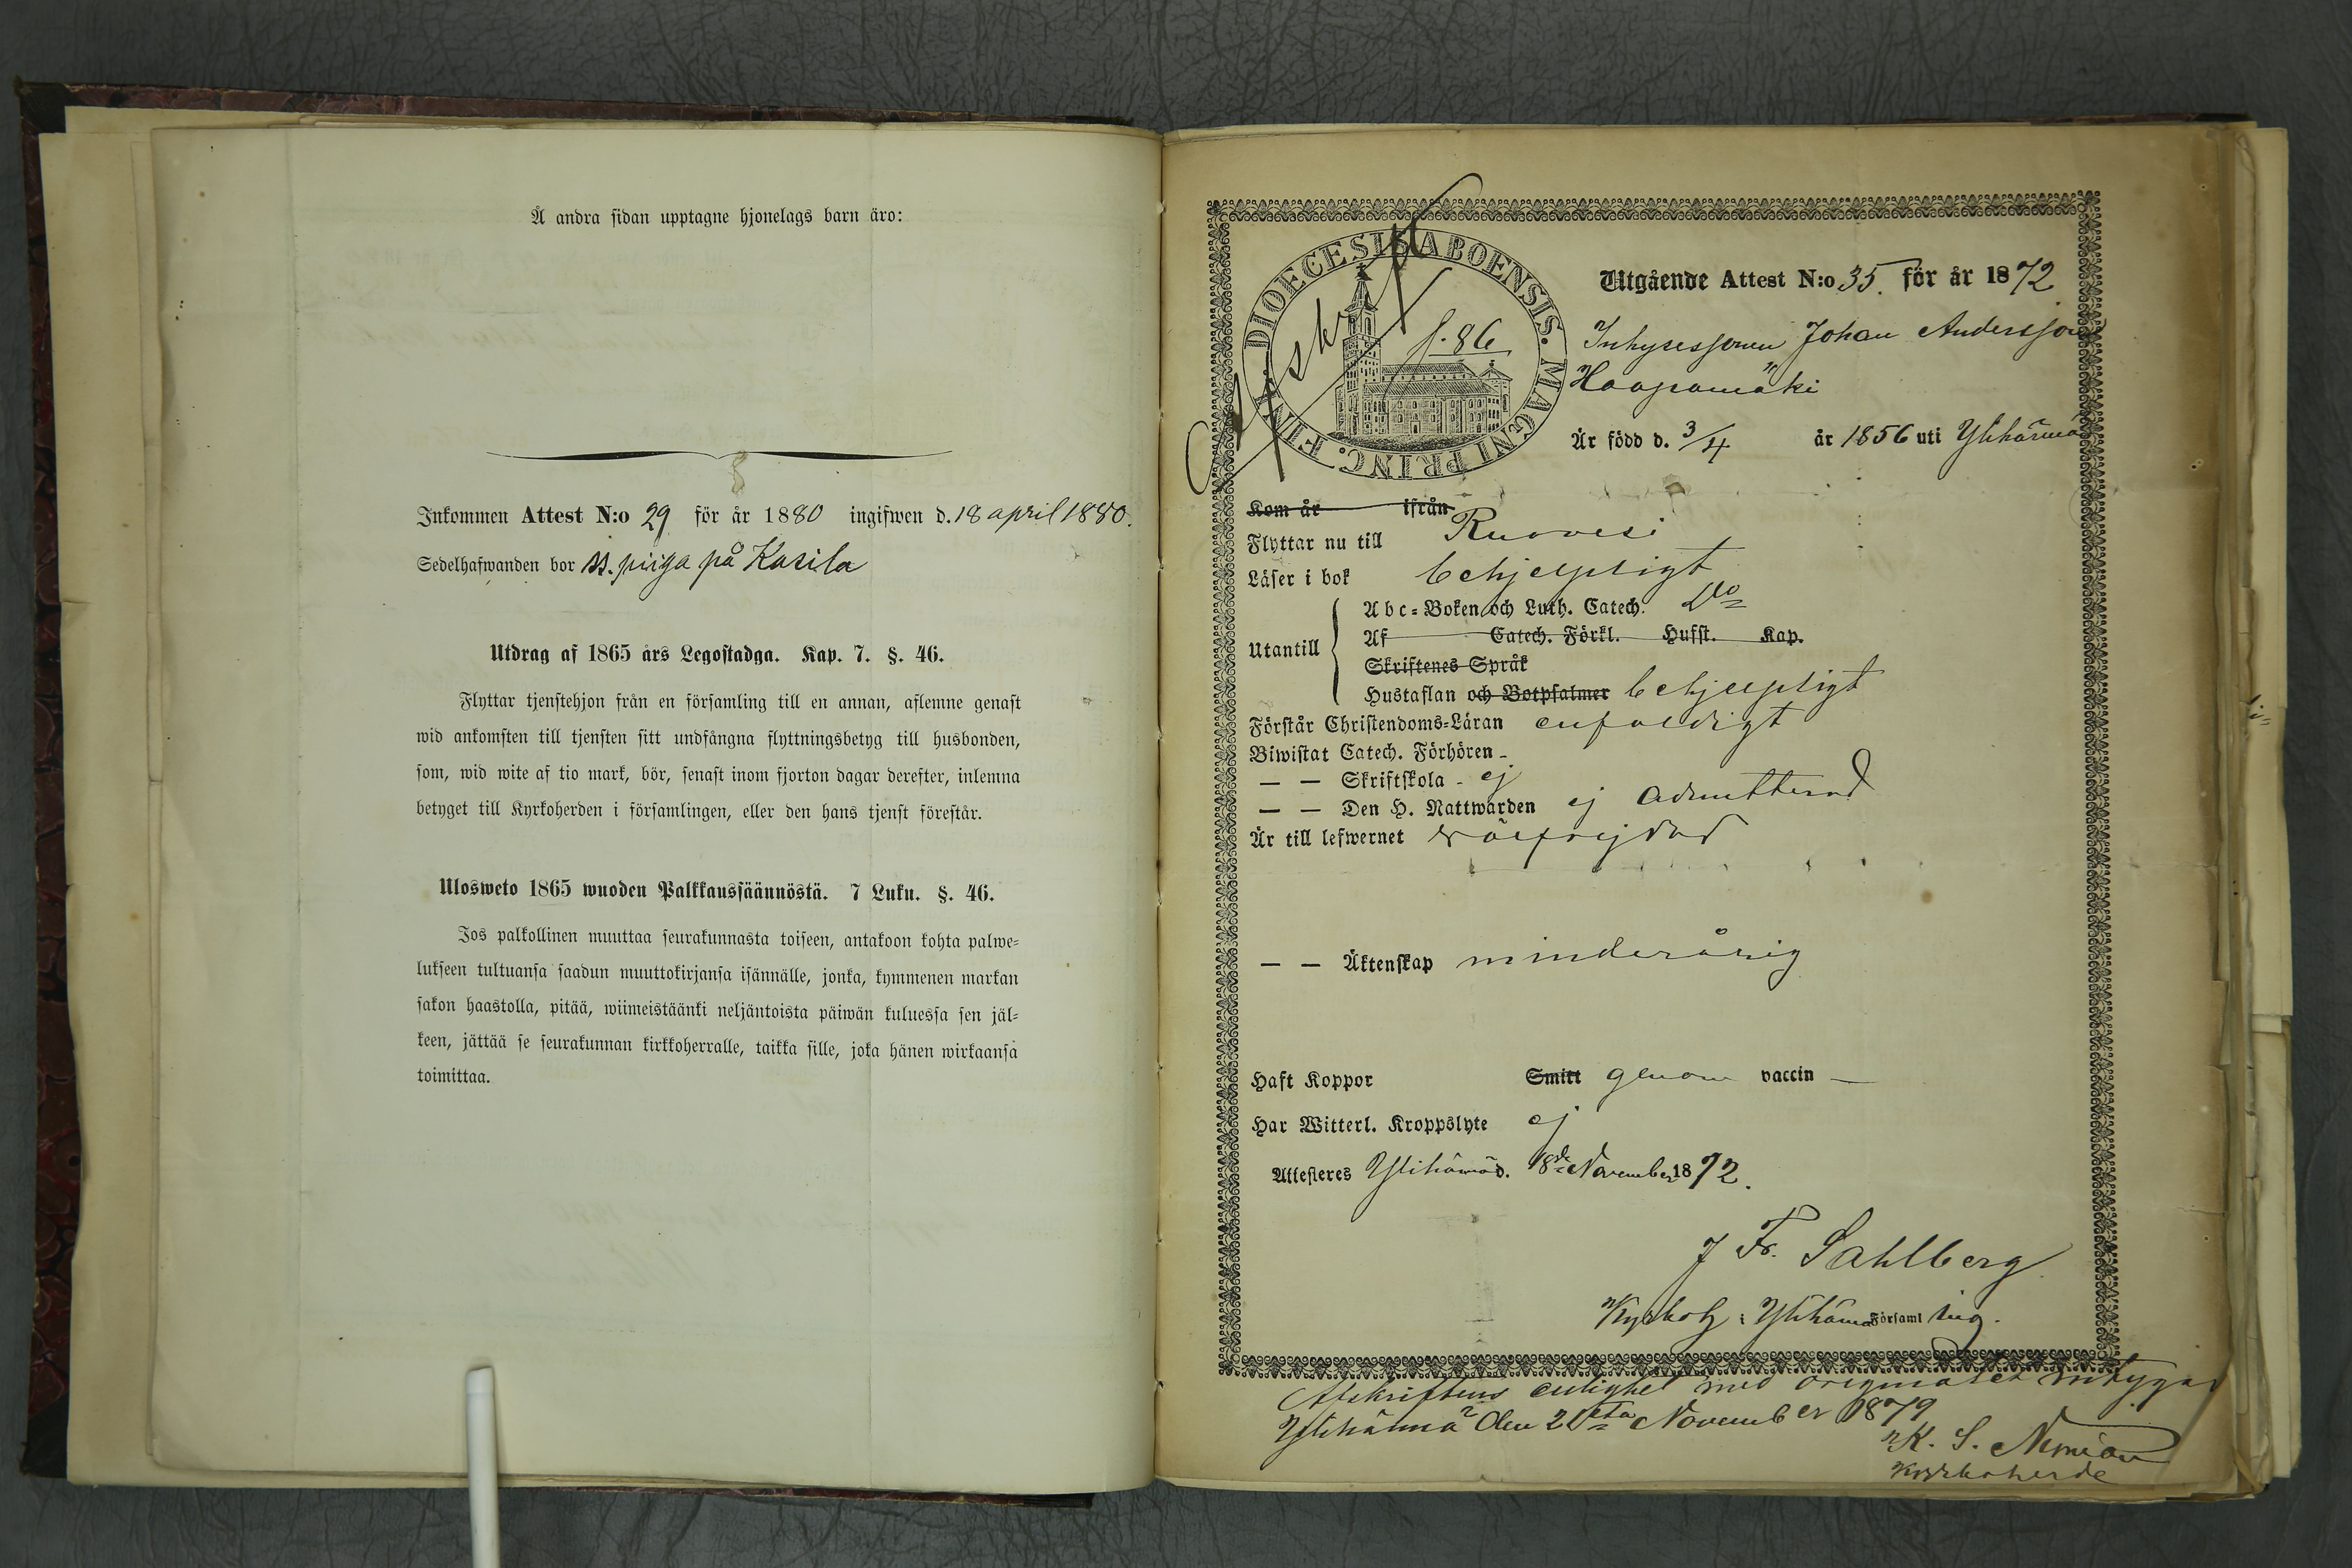 Å andra sidan upptagne hjonelags barn äro:
Inkommen Attest N:o 29 för år 1880 ingifwen d. 18 april 1880.
Sedelhafwanden bor ss. piiga på Kasila
Utdrag af 1865 års Legostadga. Kap. 7. §. 46.
Flyttar tjenstehjon från en församling till en annan, aflemne genast
wid ankomsten till tjensten sitt undfångna flyttningsbetyg till husbonden,
som, wid wite af tio mark, bör, senast inom fjorton dagar derefter, inlemna
betyget till Kyrkoherden i församlingen, eller den hans tjenst förestår.
Ulosweto 1865 wuoden Palkkaussäännöstä. 7 Luku. §. 46.
Jos palkollinen muuttaa seurakunnasta toiseen, antakoon kohta palwe-
lukseen tultuansa saadun muuttokirjansa isännälle, jonka, kymmenen markan
sakon haastolla, pitää, wiimeistäänki neljäntoista päiwän kuluessa sen jäl-
keen, jättää se seurakunnan kirkkoherralle, taikka sille, joka hänen wirkaansa
toimittaa.
DIOECESIS ABOENSIS. MAGNI PRINC. FINL.
Afskrift
f. 86
Utgående Attest N:o 35. för år 1872
Inhysessonen Johan Andersson
Haapamäki
Är född d. 3/4 år 1856 uti Ylihärmä
Kom år ifrån
Flyttar nu till Ruovesi
Läser i bok behjelpligt
Utantill
Abc-Boken och Luth. Catech. Do
Af Catech. Förkl. Husst. Kap.
Skriftenes Språk
Hustaflan och Botpsalmer behjelpligt
Förstår Christendoms-Läran enfaldigt
Biwistat Catech. Förhören -
— — Skriftskola - ej
— — Den H. Nattwarden ej admitterad
Är till lefwernet wälfrejdad
— — Äktenskap minderårig
Haft Koppor Smitt genom vaccin —
Har Witterl. Kroppslyte ej
Attesteres Ylihärmä d. 18de November 1872.
J Fr. Sahlberg
Kyrkoh. i Ylihärmä Församling.
Afskriftens enlighet med originalet intygar
Ylihärmä den 21sta November 1879
K. S.
Kyrkoherde